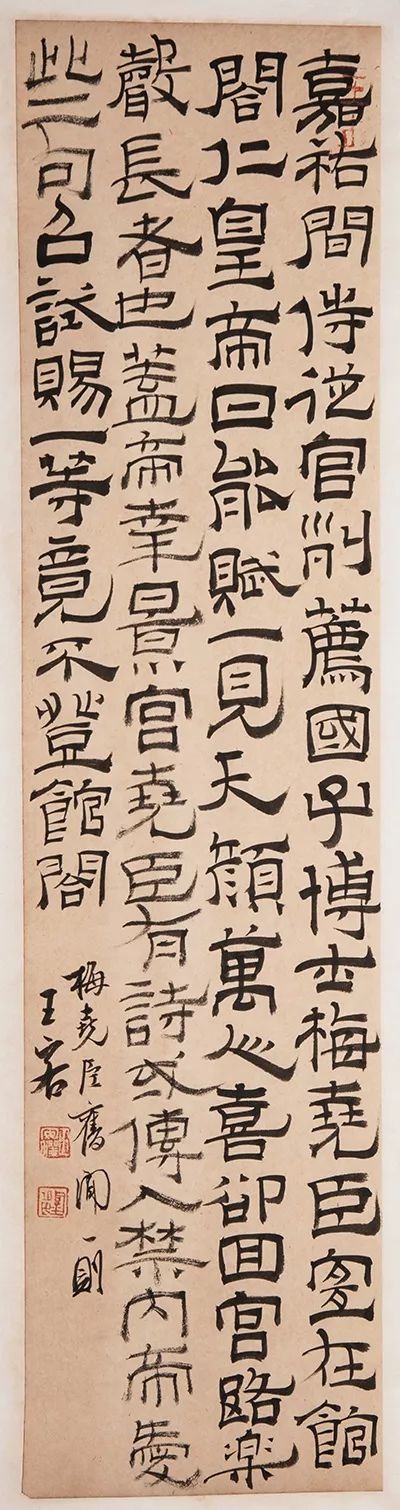 嘉祐間侍從官列薦國子博士梅堯臣宜在館
閣仁皇帝曰能賦一見天顏萬心喜卻回宮路樂
聲長者也蓋帝幸景宮堯臣有詩或傳入禁內帝愛
此二句召試賜一等竟不登館閣
梅堯臣舊聞一則
王